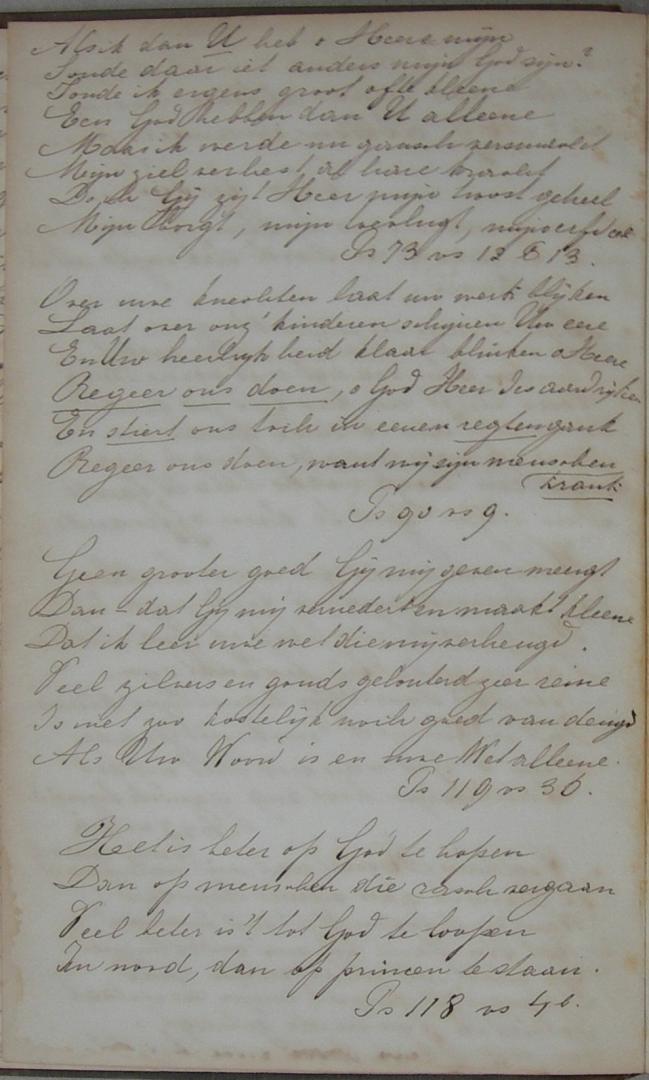 Als ik dan U heb o Heere mijn
Soude daar iet anders mijn God zijn?
Soude ik ergens groot ofte kleene
Een God hebben dan U alleene
Maar ik werde nu gansch versmacht
Mijn ziel verliest al hare kracht
Doch Gij zijt Heer mijn troost geheel
Mijn Borgt, mijn toevlugt, mijn erfdeel
Ps 73 vs 12 & 13.
Over uwe knechten laat uw werk blijken
Laat over ons' kinderen schijnen Uw eere
En Uw heerlijkheid klaar blinken o Heere
Regeer ons doen, o God Heer des aardrijken
En stiert ons toch in eenen regten gank
Regeer ons doen, want wij zijn menschen
krank
Ps 90 vs 9.
Geen grooter goed Gij mij geven meugt
Dan - dat Gij mij vernedert en maakt kleene
Dat ik leer uwe wet die mij verheugd.
Veel zilvers en gouds gelouterd zeer reine
Is niet zoo kostelijk noch goed van deugd
Als Uw Woord is en uwe Wet alleene.
Ps 119 vs 36.
Het is beter op God te hopen
Dan op menschen die rasch vergaan
Veel beter is't tot God te loopen
In nood, dan op princen te staan.
Ps 118 vs 4b.